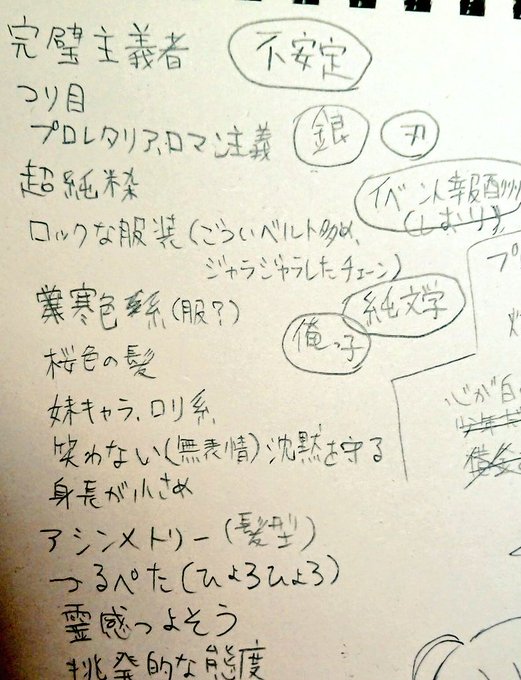 完璧主義者 不安定
つり目
プロレタリア、ロマン主義 銀 刃
超純粋
イベント報酬
(しおり)
ロックな服装(ごついベルト多め、
ジャラジャラしたチェーン)
寒色系(服?)
純文学
俺っ子
桜色の髪
妹キャラ、ロリ系
笑わない(無表情)沈黙を守る
身長が小さめ
アシンメトリー(髪型)
つるぺた(ひょろひょろ)
霊感つよそう
挑発的な態度
プ
心が